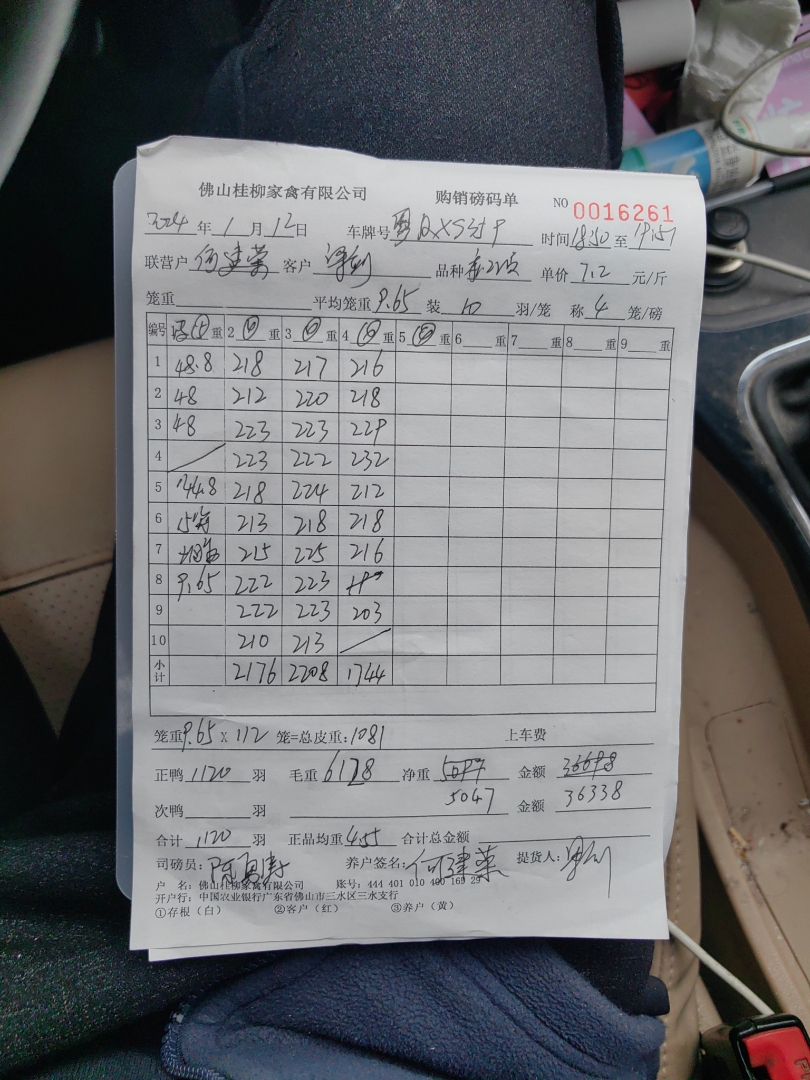 佛山桂柳家禽有限公司 购销磅码单 NO 0016261
2024 年 1 月 12 日 车牌号 时间 18:50 至 19:51
联营户 何建荣 客户 品种 单价 7.2 元/斤
笼重 平均笼重 9.65 装 10 羽/笼 称 4 笼/磅
编号 重 2 重 3 重 4 重 5 重 6 重 7 重 8 重 9 重
1 48.8 218 217 216
2 48 212 220 218
3 48 223 223 229
4 223 222 232
5 144.8 218 224 212
6 213 218 218
7 215 225 216
8 9.65 222 223
9 222 223 203
10 210 213
小计 2176 2208 1744
笼重 9.65 X 112 笼=总皮重: 1081 上车费
正鸭 1120 羽 毛重 6128 净重 金额
次鸭 羽 5047 金额 36338
合计 1120 羽 正品均重 4.55 合计总金额
司磅员: 养户签名: 何建荣 提货人:
户 名: 佛山桂柳家禽有限公司 账号: 444 401 010 400 169 29
开户行: 中国农业银行广东省佛山市三水区三水支行
①存根（白） ②客户（红） ③养户（黄）